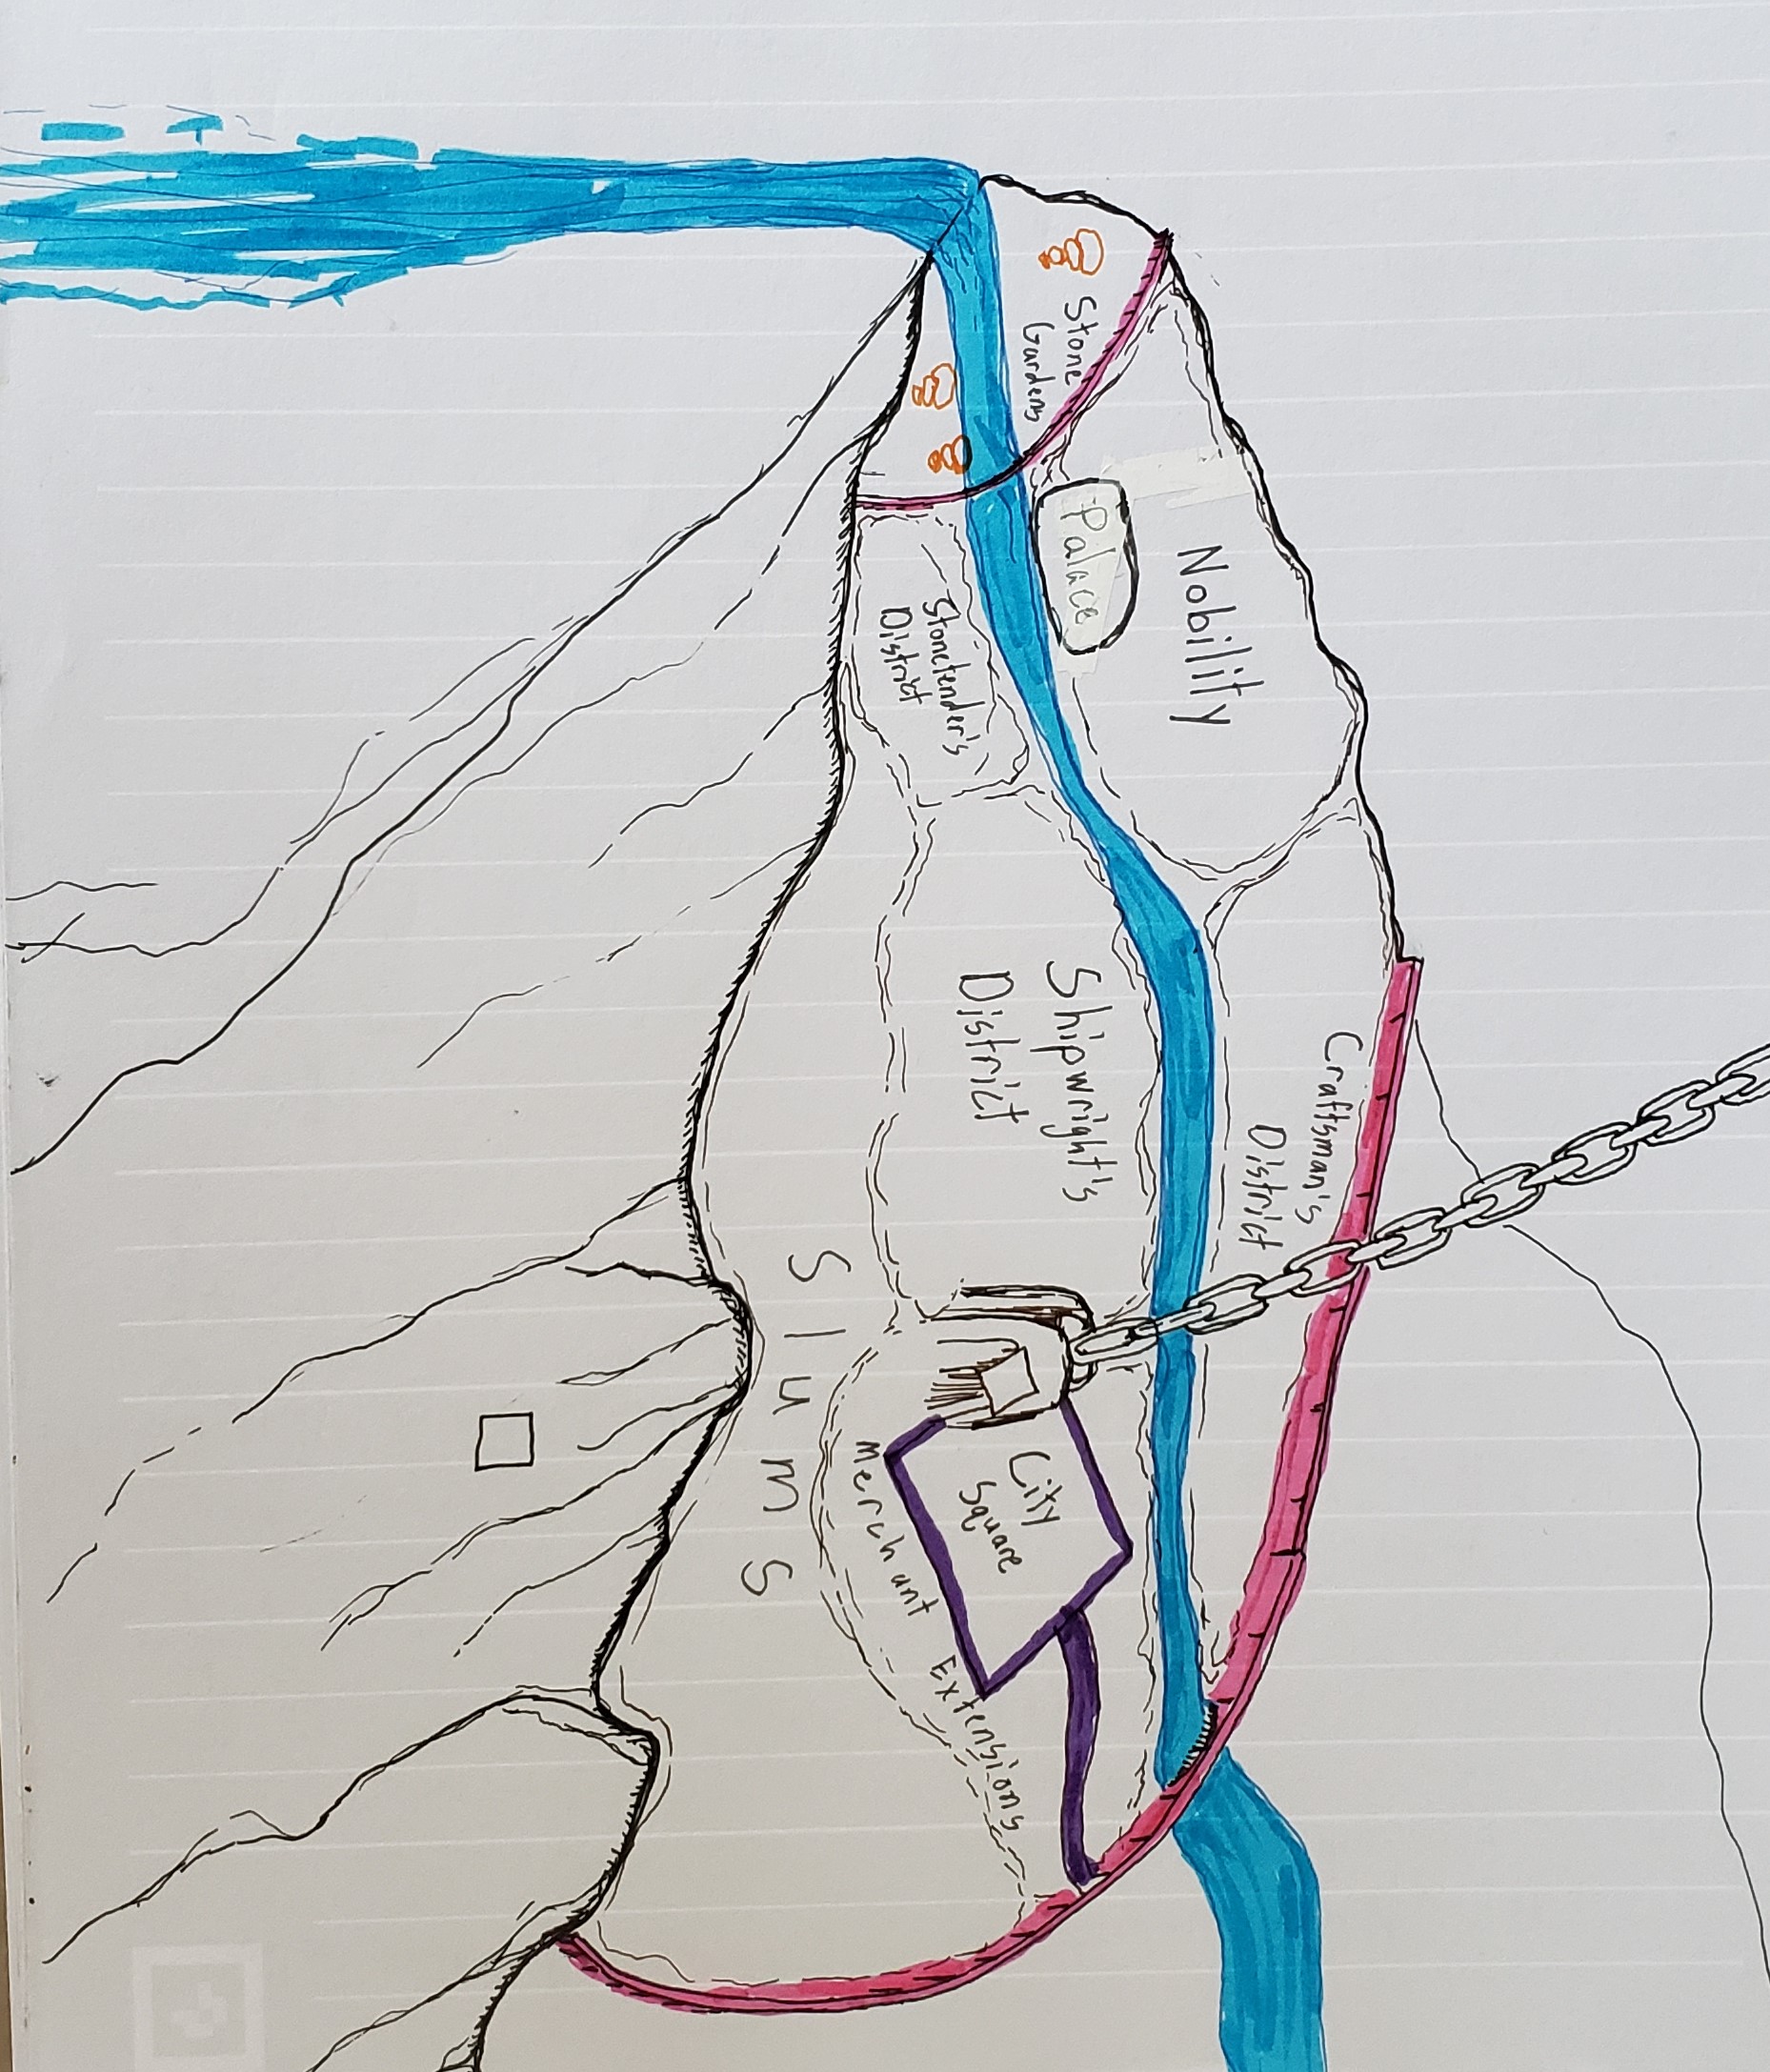 Craftsman's
District
Nobility
Palace
Stone
Gardens
Shipwright's
District
City
Square
Stonetender's
District
Merchant Extensions
Slums